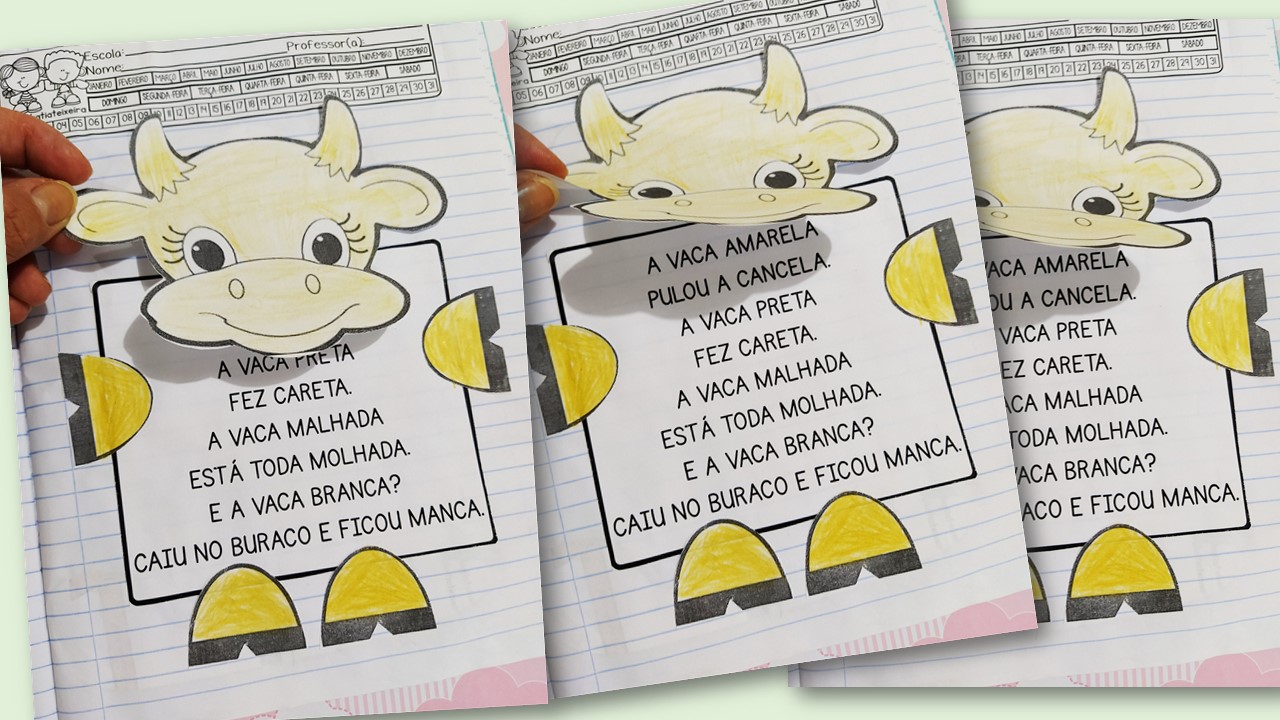 Escola: Professor(a)
Nome:
JANEIRO FEVEREIRO MARÇO ABRIL MAIO JUNHO JULHO AGOSTO SETEMBRO OUTUBRO NOVEMBRO DEZEMBRO
DOMINGO SEGUNDA-FEIRA TERÇA-FEIRA QUARTA-FEIRA QUINTA-FEIRA SEXTA-FEIRA SÁBADO
04 05 06 07 08 09 10 11 12 13 14 15 16 17 18 19 20 21 22 23 24 25 26 27 28 29 30 31
A VACA PRETA
FEZ CARETA.
A VACA MALHADA
ESTÁ TODA MOLHADA.
E A VACA BRANCA?
CAIU NO BURACO E FICOU MANCA.
Nome:
JANEIRO FEVEREIRO MARÇO ABRIL MAIO JUNHO JULHO AGOSTO SETEMBRO OUTUBRO
DOMINGO SEGUNDA-FEIRA TERÇA-FEIRA QUARTA-FEIRA QUINTA-FEIRA SEXTA-FEIRA SÁBADO
05 06 07 08 09 10 11 12 13 14 15 16 17 18 19 20 21 22 23 24 25 26 27 28 29 30 31
A VACA AMARELA
PULOU A CANCELA.
A VACA PRETA
FEZ CARETA.
A VACA MALHADA
ESTÁ TODA MOLHADA.
E A VACA BRANCA?
CAIU NO BURACO E FICOU MANCA.
MARÇO ABRIL MAIO JUNHO JULHO AGOSTO SETEMBRO OUTUBRO NOVEMBRO DEZEMBRO
TERÇA-FEIRA QUARTA-FEIRA QUINTA-FEIRA SEXTA-FEIRA SÁBADO
13 14 15 16 17 18 19 20 21 22 23 24 25 26 27 28 29 30 31
VACA AMARELA
OU A CANCELA.
VACA PRETA
EZ CARETA.
ACA MALHADA
TODA MOLHADA.
VACA BRANCA?
ACO E FICOU MANCA.